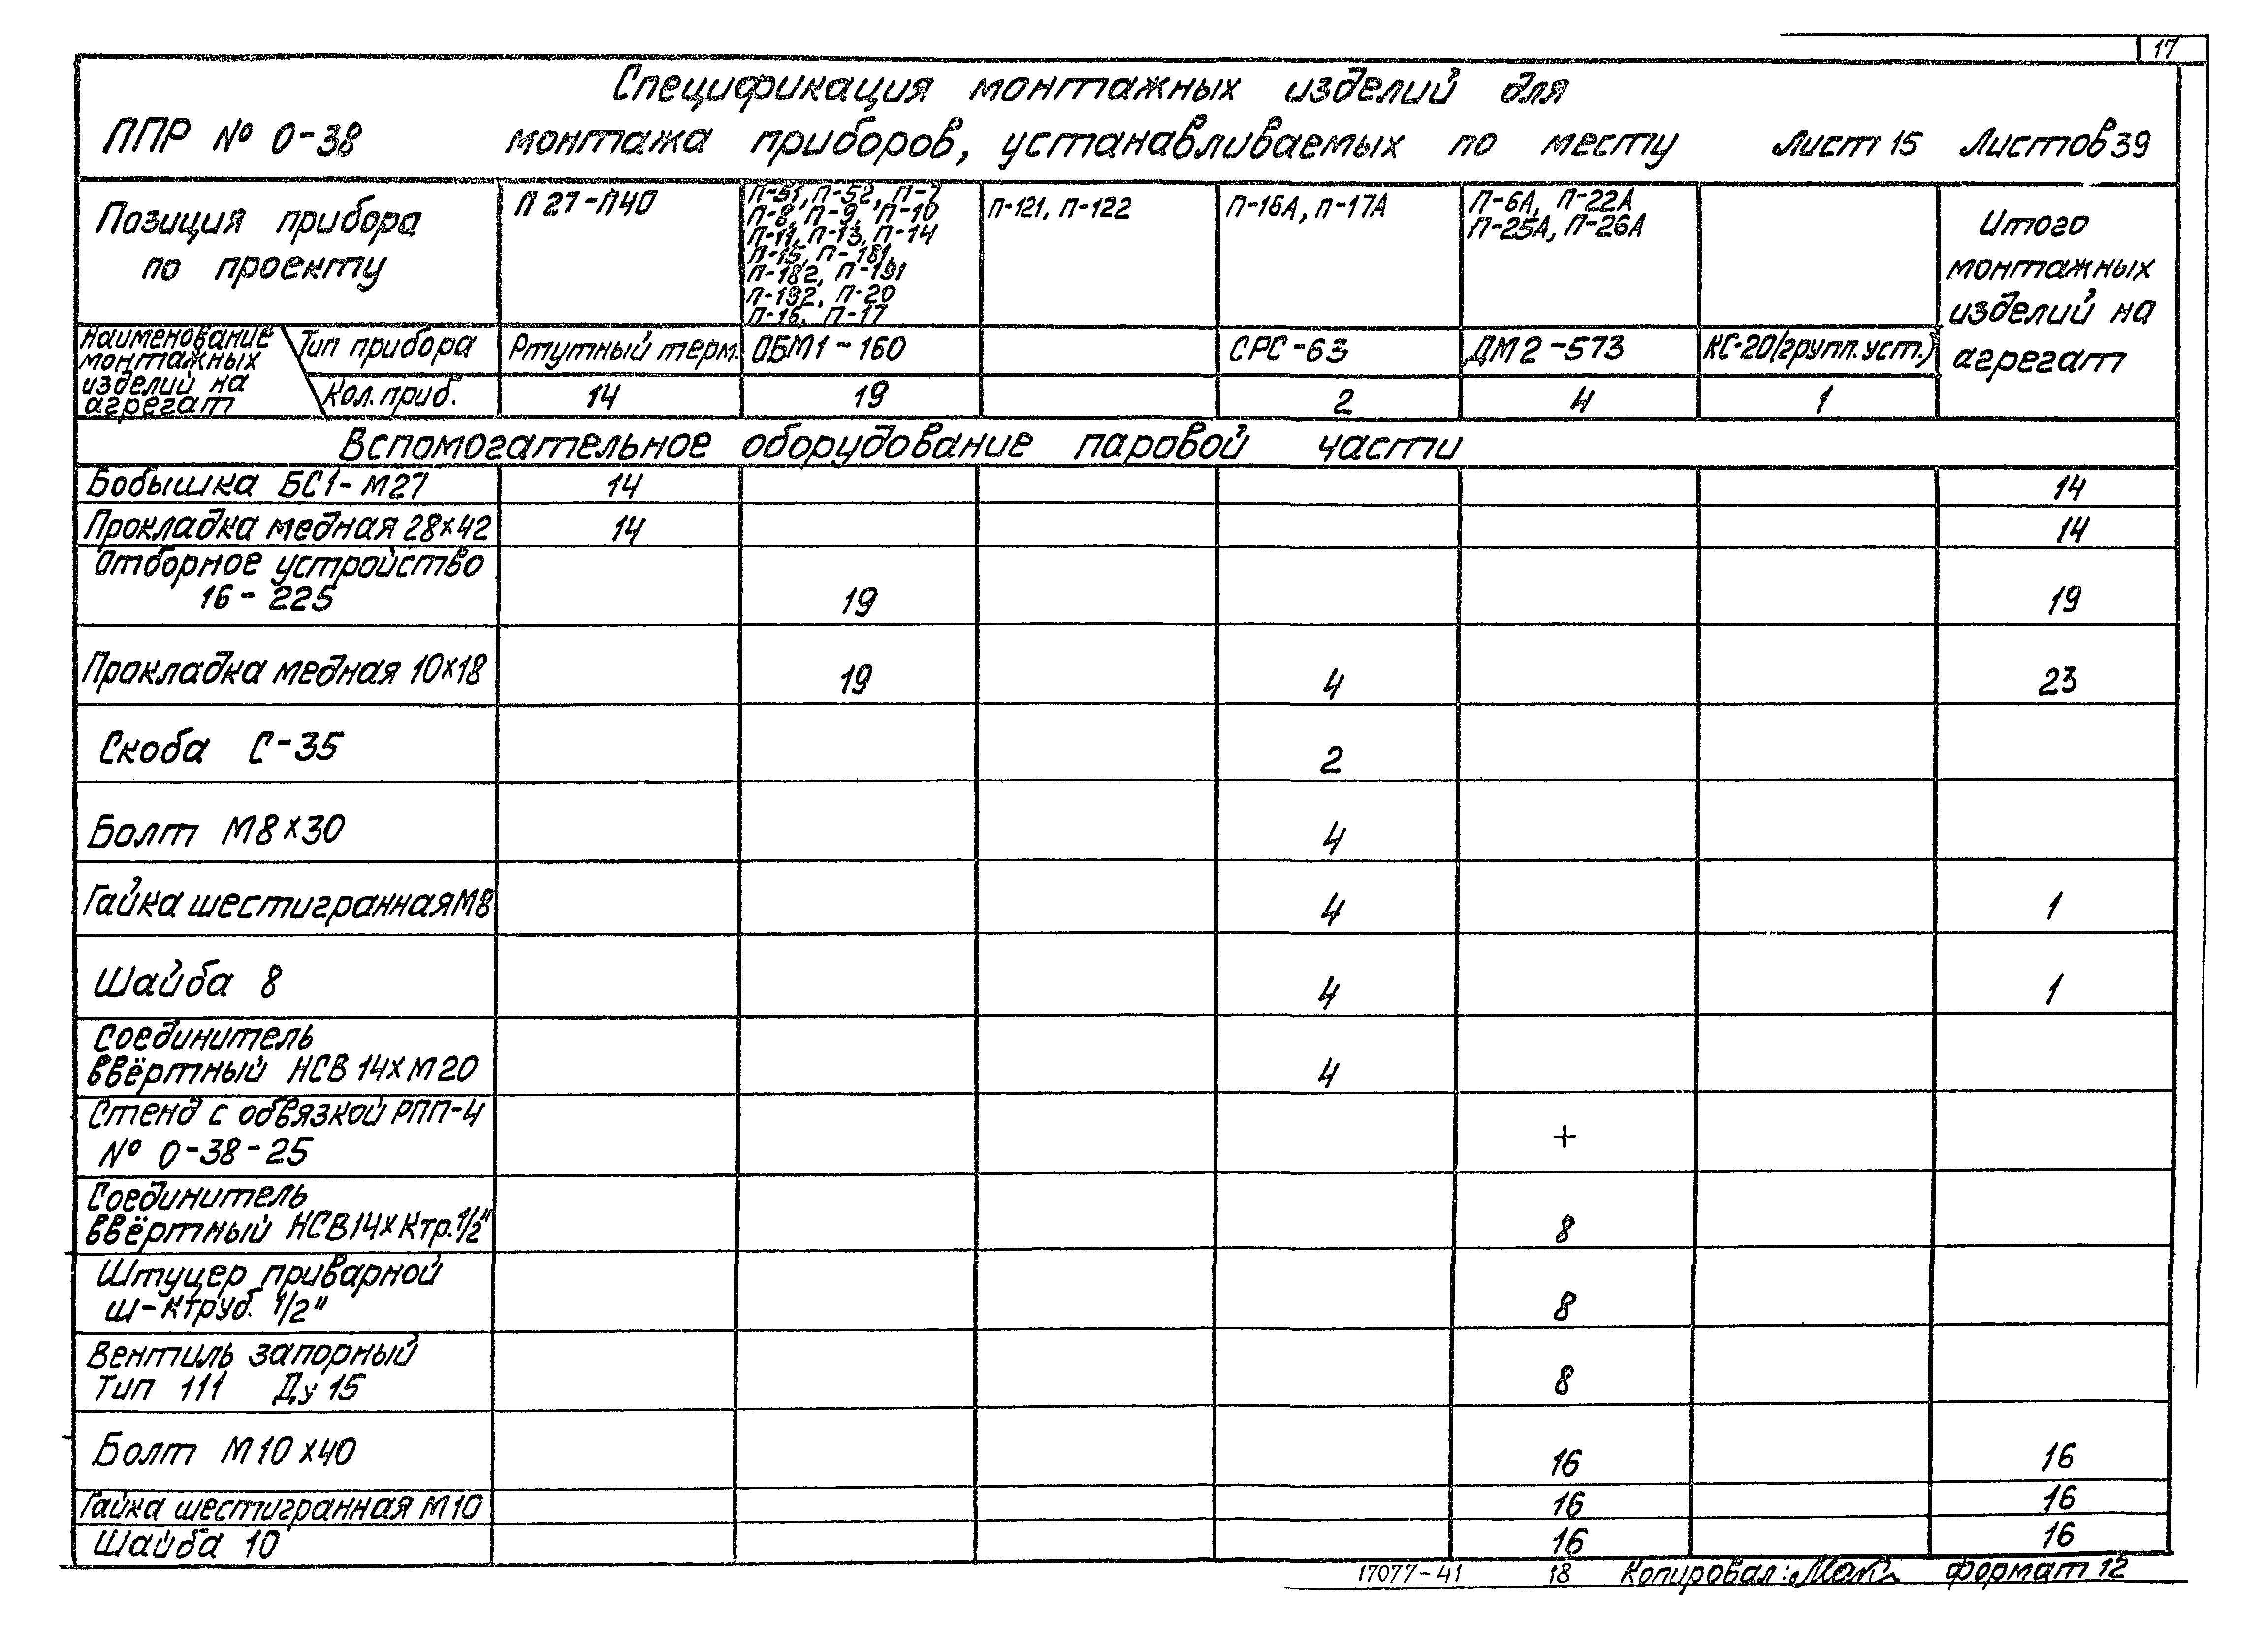 17
Спецификация монтажных изделий для
ППР № 0-38 монтажа приборов, устанавливаемых по месту Лист 15 Листов 39
Позиция прибора
по проекту
П 27-П40
П-51, П-52, П-7
П-8, П-9, П-10
П-11, П-13, П-14
П-15, П-181,
П-182, П-191
П-192, П-20
П-16, П-17
П-121, П-122
П-16А, П-17А
П-6А, П-22А
П-25А, П-26А
Итого
монтажных
изделий на
агрегат
Наименование
монтажных
изделий на
агрегат
Тип прибора Ртутный терм. ОБМ1-160 СРС-63 ДМ2-573 КС-20(групп.уст.)
Кол. приб. 14 19 2 4 1
Вспомогательное оборудование паровой части
Бобышка БС1-М27 14 14
Прокладка медная 28х42 14 14
Отборное устройство
16-225 19 19
Прокладка медная 10х18 19 4 23
Скоба С-35 2
Болт М8х30 4
Гайка шестигранная М8 4 1
Шайба 8 4 1
Соединитель
ввёртный НСВ 14хМ20 4
Стенд с обвязкой РПП-4
№ 0-38-25 +
Соединитель
ввёртный НСВ14хКтр.1/2" 8
Штуцер приварной
Ш-Ктруб. 1/2" 8
Вентиль запорный
Тип 111 Ду 15 8
Болт М10х40 16 16
Гайка шестигранная М10 16 16
Шайба 10 16 16
17077-41 18 Копировал: Формат 12